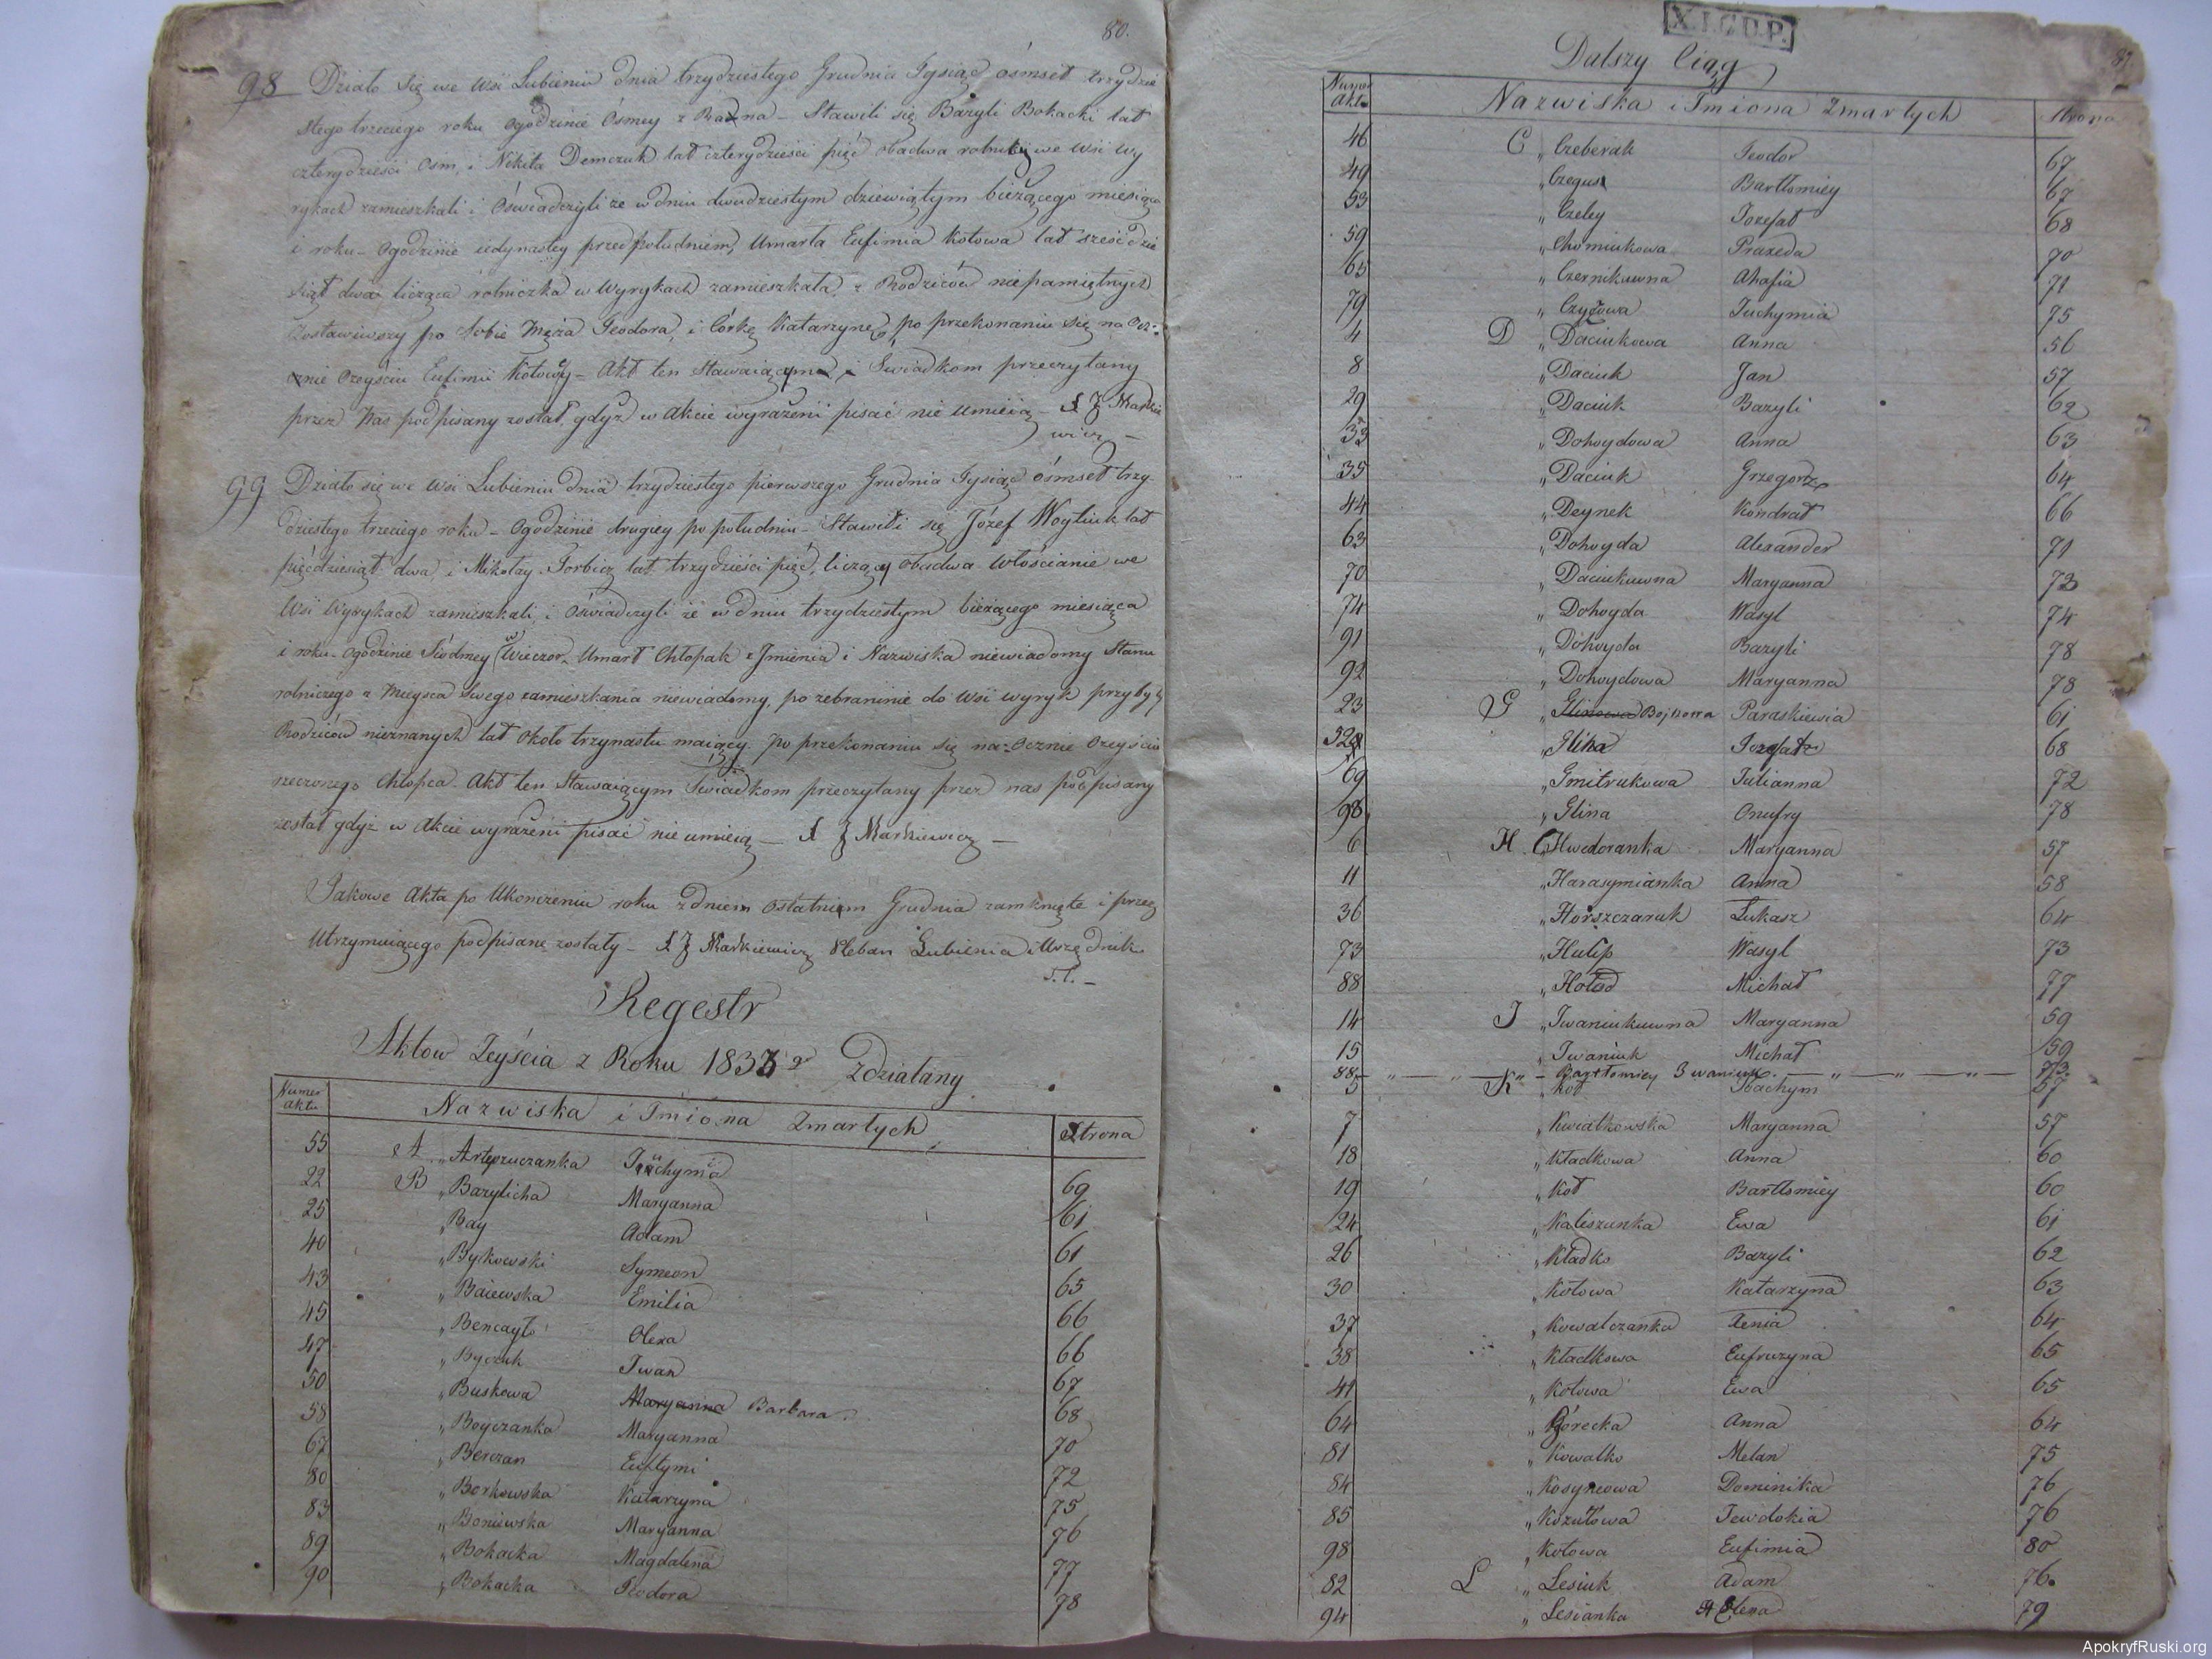 80.
98 Działo Się we Wsi Lubieniu dnia trzydziestego Grudnia Tysiąc ósmset trzydzie
stego trzeciego roku Ogodzinie Ósmey z Rana – Stawili się Bazyli Bokacki lat
czterydzieści Osm, i Nikita Demczuk lat czterydzieści pięć obadwa rolnicy we Wsi Wy
rykach zamieszkali i Oświadczyli że w dniu dwudziestym dziewiątym bieżącego miesiąca
i roku – Ogodzinie jedynastey przed południem, Umarła Eufimia Kotowa lat sześćdzie
siąt dwa licząca rolniczka w Wyrykach zamieszkała, z Rodziców niepamiętnych
Zostawiwszy po Sobie Męża Teodora, i Córkę Katarzynę, po przekonaniu się na Ocz:
cznie Ozeyściu Eufimii Kotowy – Akt ten Stawaiącym i Swiadkom przeczytany
przez Nas podpisany został, gdyż w akcie wyrażeni pisać nie umieią – X J Markie
wicz –
99 Działo się we Wsi Lubieniu dnia trzydziestego pierwszego Grudnia Tysiąc ósmset trzy
dziestego trzeciego roku – Ogodzinie drugiey po południu – Stawili się Józef Woytiuk lat
pięćdziesiąt dwa, i Mikołay Torbicz lat trzydzieści pięć, liczący obadwa Włościanie we
Wsi Wyrykach zamieszkali, i Oświadczyli że w dniu trzydziestym bieżącego miesiąca
i roku – Ogodzinie Siódmey w Wieczor, Umarł Chłopak z Jmienia i Nazwiska niewiadomy Stanu
rolniczego z Mieysca Swego zamieszkania niewiadomy, po zebraninie do Wsi Wyryk przybyły
Rodziców nieznanych lat około trzynastu maiący. Po przekonaniu się na Ocznie Ozeyściu
rzeczonego Chłopca Akt ten Stawaiącym i Swiadkom przeczytany przez nas podpisany
został gdyż w Akcie wyrażeni pisać nie umieią – X J Markiewicz –
Jakowe Akta po Ukończeniu roku z dniem Ostatniem Grudnia zamknięte i przez
Utrzymuiącego podpisane zostały – X J Markiewicz Pleban Lubienia i Urzędnik
S. C. –
Regestr
Aktow Zeyścia z Roku 1833 go Zdziałany
Numer aktu Nazwiska i Imiona Zmarłych Strona
55 A „ Artyszuczanka Juchyma 69
22 B „ Bazylicha Maryanna 61
25 „ Bay Adam 61
40 „ Bykowski Symeon 65
43 „ Baiewska Emilia 66
45 „ Bencayło Olexa 66
47 „ Byczuk Iwan 67
50 „ Buskowa Maryanna Barbara 68
58 „ Boyczanka Maryanna 70
67 „ Berezan Euftymi 72
80 „ Borkowska Katarzyna 75
83 „ Boniewska Maryanna 76
89 „ Bokacka Magdalena 77
90 „ Bokacka Teodora 78
X.I.G.U.P.
Dalszy Ciąg
Numer Aktu Nazwiska i Imiona Zmarłych Strona
46 C „ Czeberak Teodor 67
49 „ Czegus Bartłomiey 67
53 „ Czeley Jozefat 68
59 „ Chomiukowa Praxeda 70
65 „ Czernikuwna Ahafia 71
79 „ Czyżowa Juchymia 75
4 D „ Daciukowa Anna 56
8 „ Daciuk Jan 57
29 „ Daciuk Bazyli 62
33 „ Dohoydowa Anna 63
35 „ Daciuk Grzegorz 64
44 „ Deynek Kondrat 66
63 „ Dohoyda Alexander 71
70 „ Daciukuwna Maryanna 73
74 „ Dohoyda Wasyl 74
91 „ Dohoyda Bazyli 78
92 „ Dohoydowa Maryanna 78
23 G „ Glinowa Bojkowa Paraskiewia 61
52 „ Glina Jozefat 68
69 „ Gmitrukowa Julianna 72
98 „ Glina Onufry 78
6 H „ Hwedoranka Maryanna 57
11 „ Harasymianka Anna 58
36 „ Horszczaruk Łukasz 64
73 „ Hulip Wasyl 73
88 „ Hołod Michał 77
14 I „ Iwaniukuwna Maryanna 59
15 „ Iwaniuk Michał 59
88 – „ – Bartłomiey Iwaniuk – „ – „ – 73
5 K „ Kot Joachym 57
7 „ Kwiatkowska Maryanna 57
18 „ Kładkowa Anna 60
19 „ Kot Bartłomiey 60
24 „ Kaliszunka Ewa 61
26 „ Kładko Bazyli 62
30 „ Kotowa Katarzyna 63
37 „ Kowalczanka Xenia 64
38 „ Kładkowa Eufrozyna 65
41 „ Kotowa Ewa 65
64 „ Górecka Anna 64
81 „ Kowalko Melan 75
84 „ Kosyncowa Dominika 76
85 „ Kozutowa Jewdokia 76
98 „ Kotowa Eufimia 80
82 L „ Lesiuk Adam 76
94 „ Lesianka Olena 79
ApokryfRuski.org